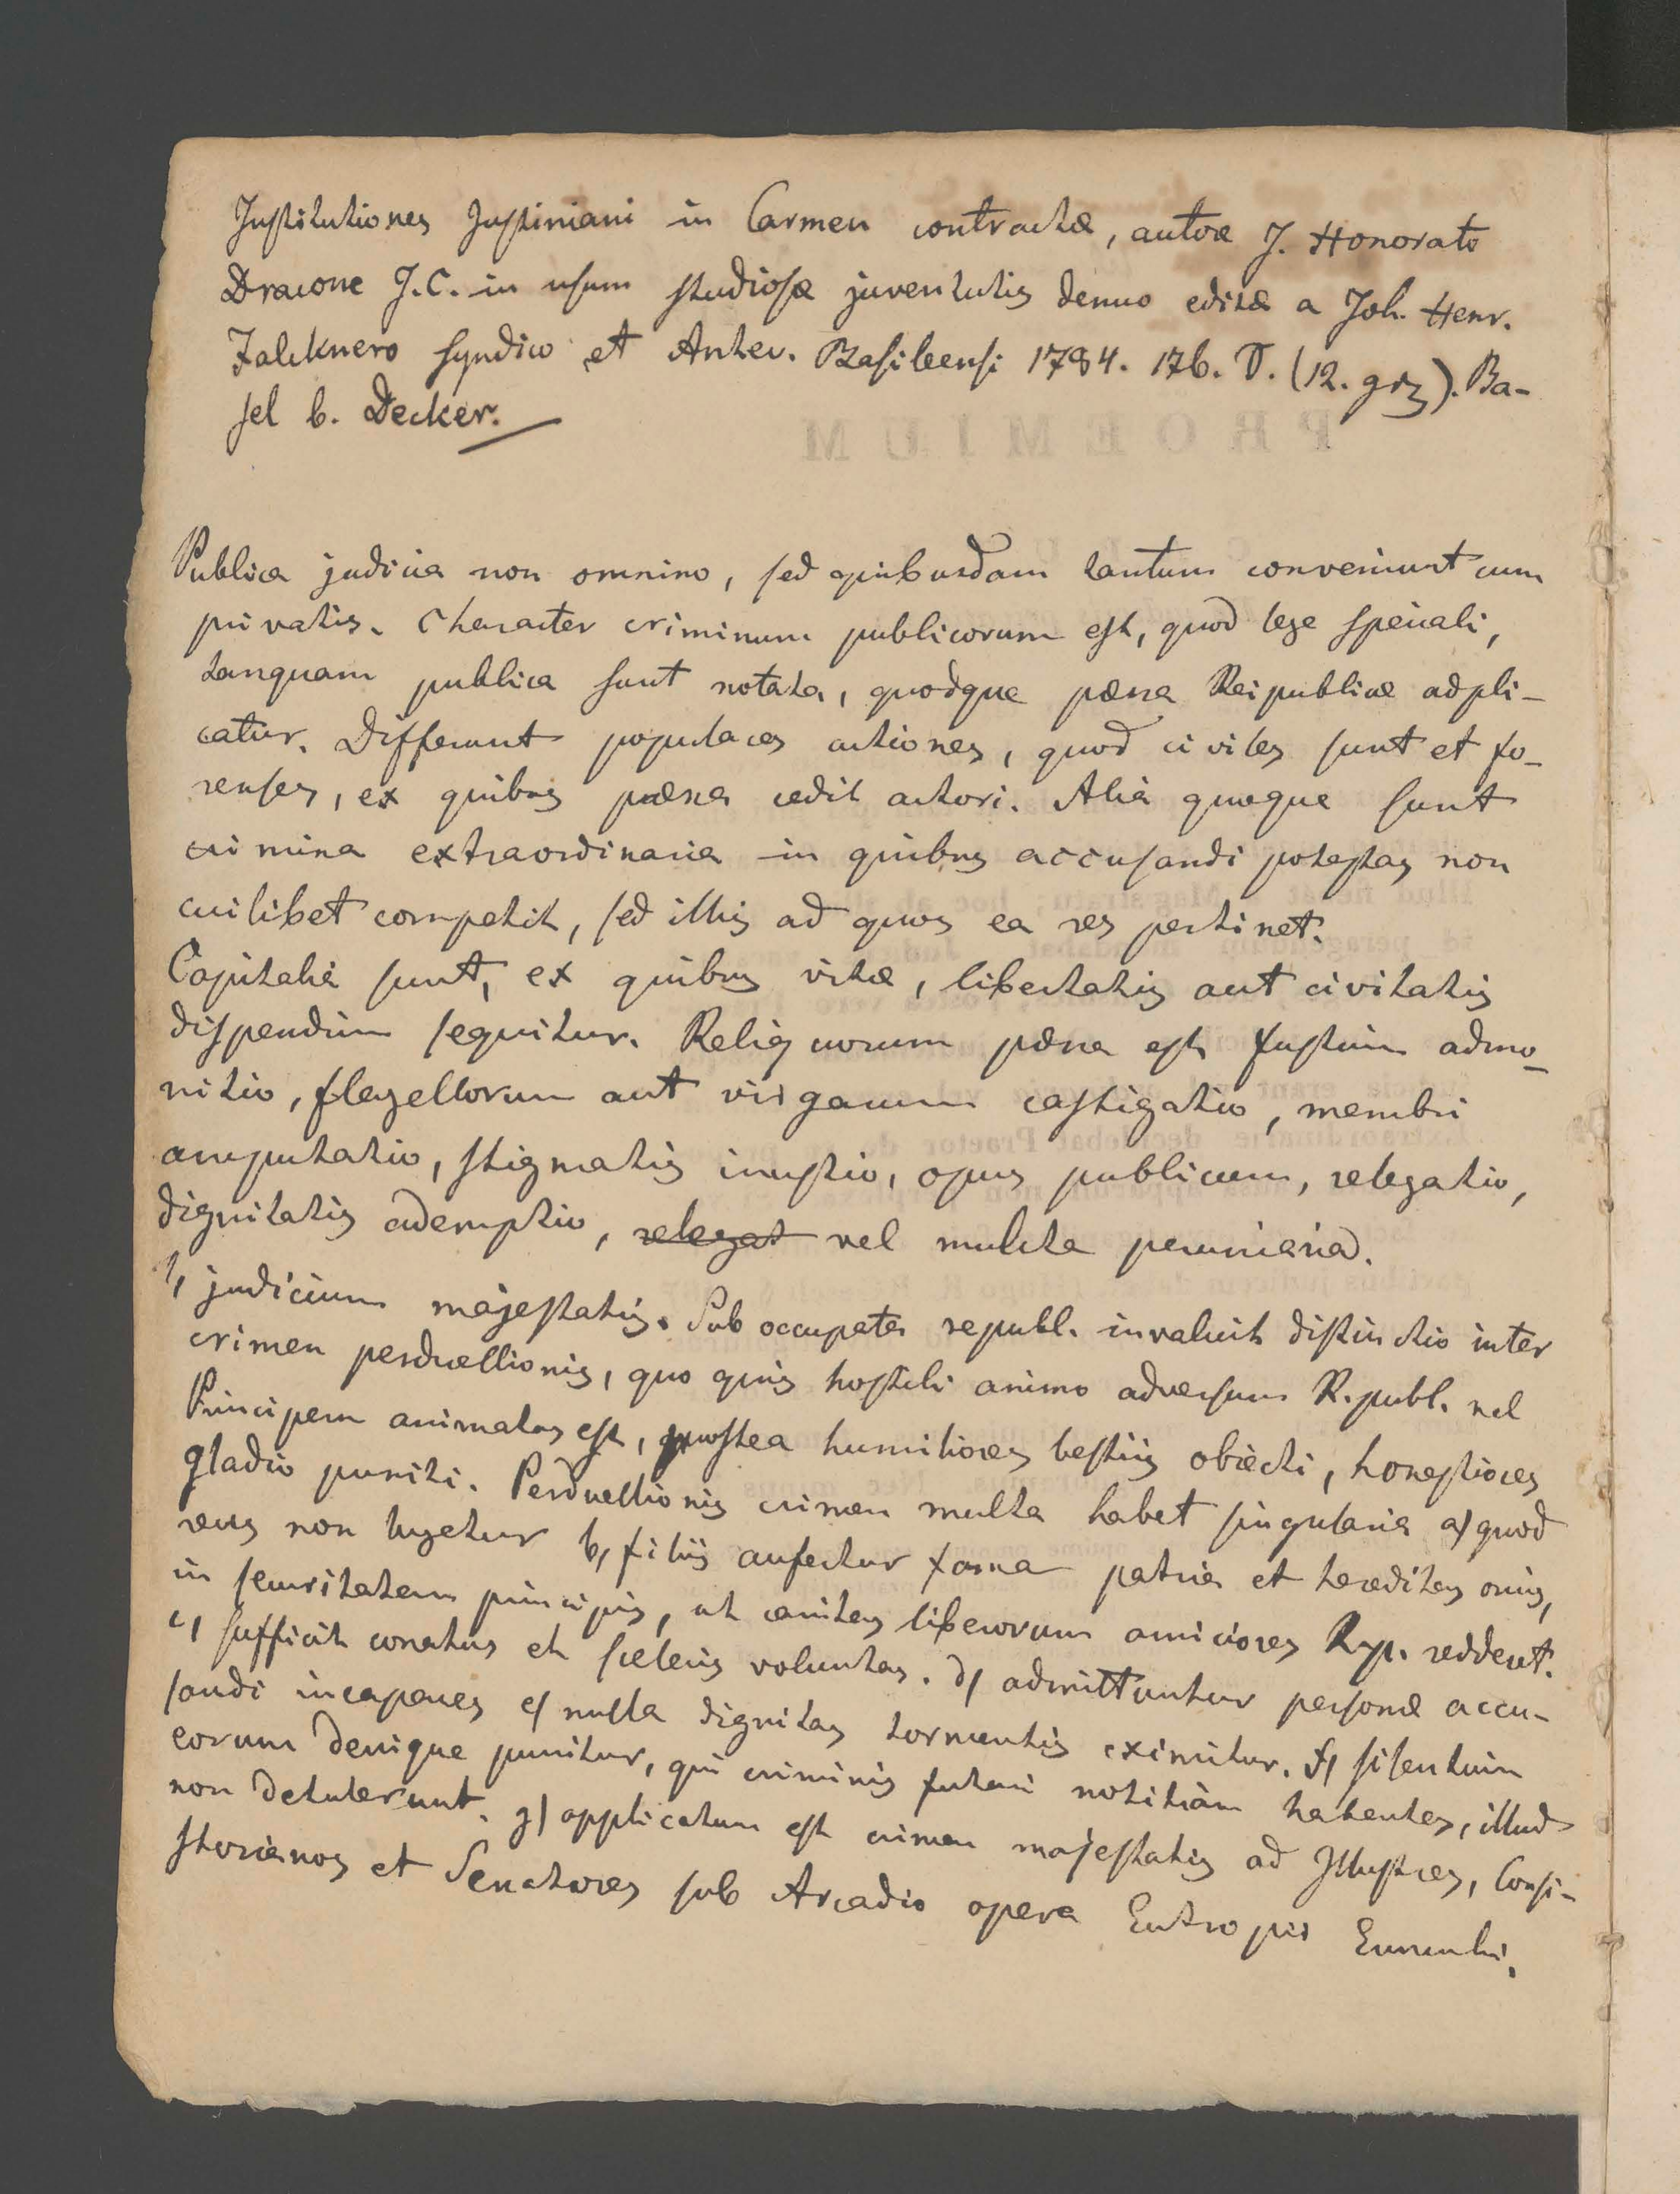 Institutiones Justiniani in Carmen contractæ, autore J. Honorato
Dracone J.C. in usum studiosæ juventutis denuo editæ a Joh. Henr.
Falcknero Syndico et Antec. Basileensi 1784. 176. 8. (12. grz). Ba-
sel b. Decker.
PROEMIUM
Publica judicia non omnino, sed quibusdam tantum conveniunt cum
privatis. Character criminum publicorum est, quod lege speciali,
tanquam publica sunt notata, quodque pœna Reipublicæ adpli-
catur. Differunt populares actiones, quod civiles sunt et fo-
renses, ex quibus pœna cedit actori. Alia quæque sunt
crimina extraordinaria in quibus accusandi potestas non
cuilibet competit, sed illis ad quos ea res pertinet.
Capitalia sunt, ex quibus vitæ, libertatis aut civitatis
dispendium sequitur. Reliquorum pœna est fustium admo-
nitio, flagellorum aut virgarum castigatio, membri
amputatio, stigmatis inustio, opus publicum, relegatio,
dignitatis ademptio, relegat vel mulcta pecuniaria.
1, judicium majestatis. Sub occupata republ. invaluit distinctio inter
crimen perduellionis, quo quis hostili animo adversum R.publ. vel
Principem animatus est, postea humiliores bestiis objecti, honestiores
gladio puniti. Perduellionis crimen multa habet singularia a) quod
reus non lugetur b, filiis aufertur fama patria et hereditas omnis,
in securitatem principis, ut caritas liberorum amiciores Rp. redderet.
c, sufficit conatus et sceleris voluntas. d) admittuntur personæ accu-
sandi incapaces e) nulla dignitas tormentis eximitur. f) silentium
eorum denique punitur, qui criminis futuri notitiam habentes, illud
non detulerunt. g) applicatum est crimen majestatis ad Illustres, Consi-
storianos et Senatores sub Arcadio opera Eutropii Eunuchi.